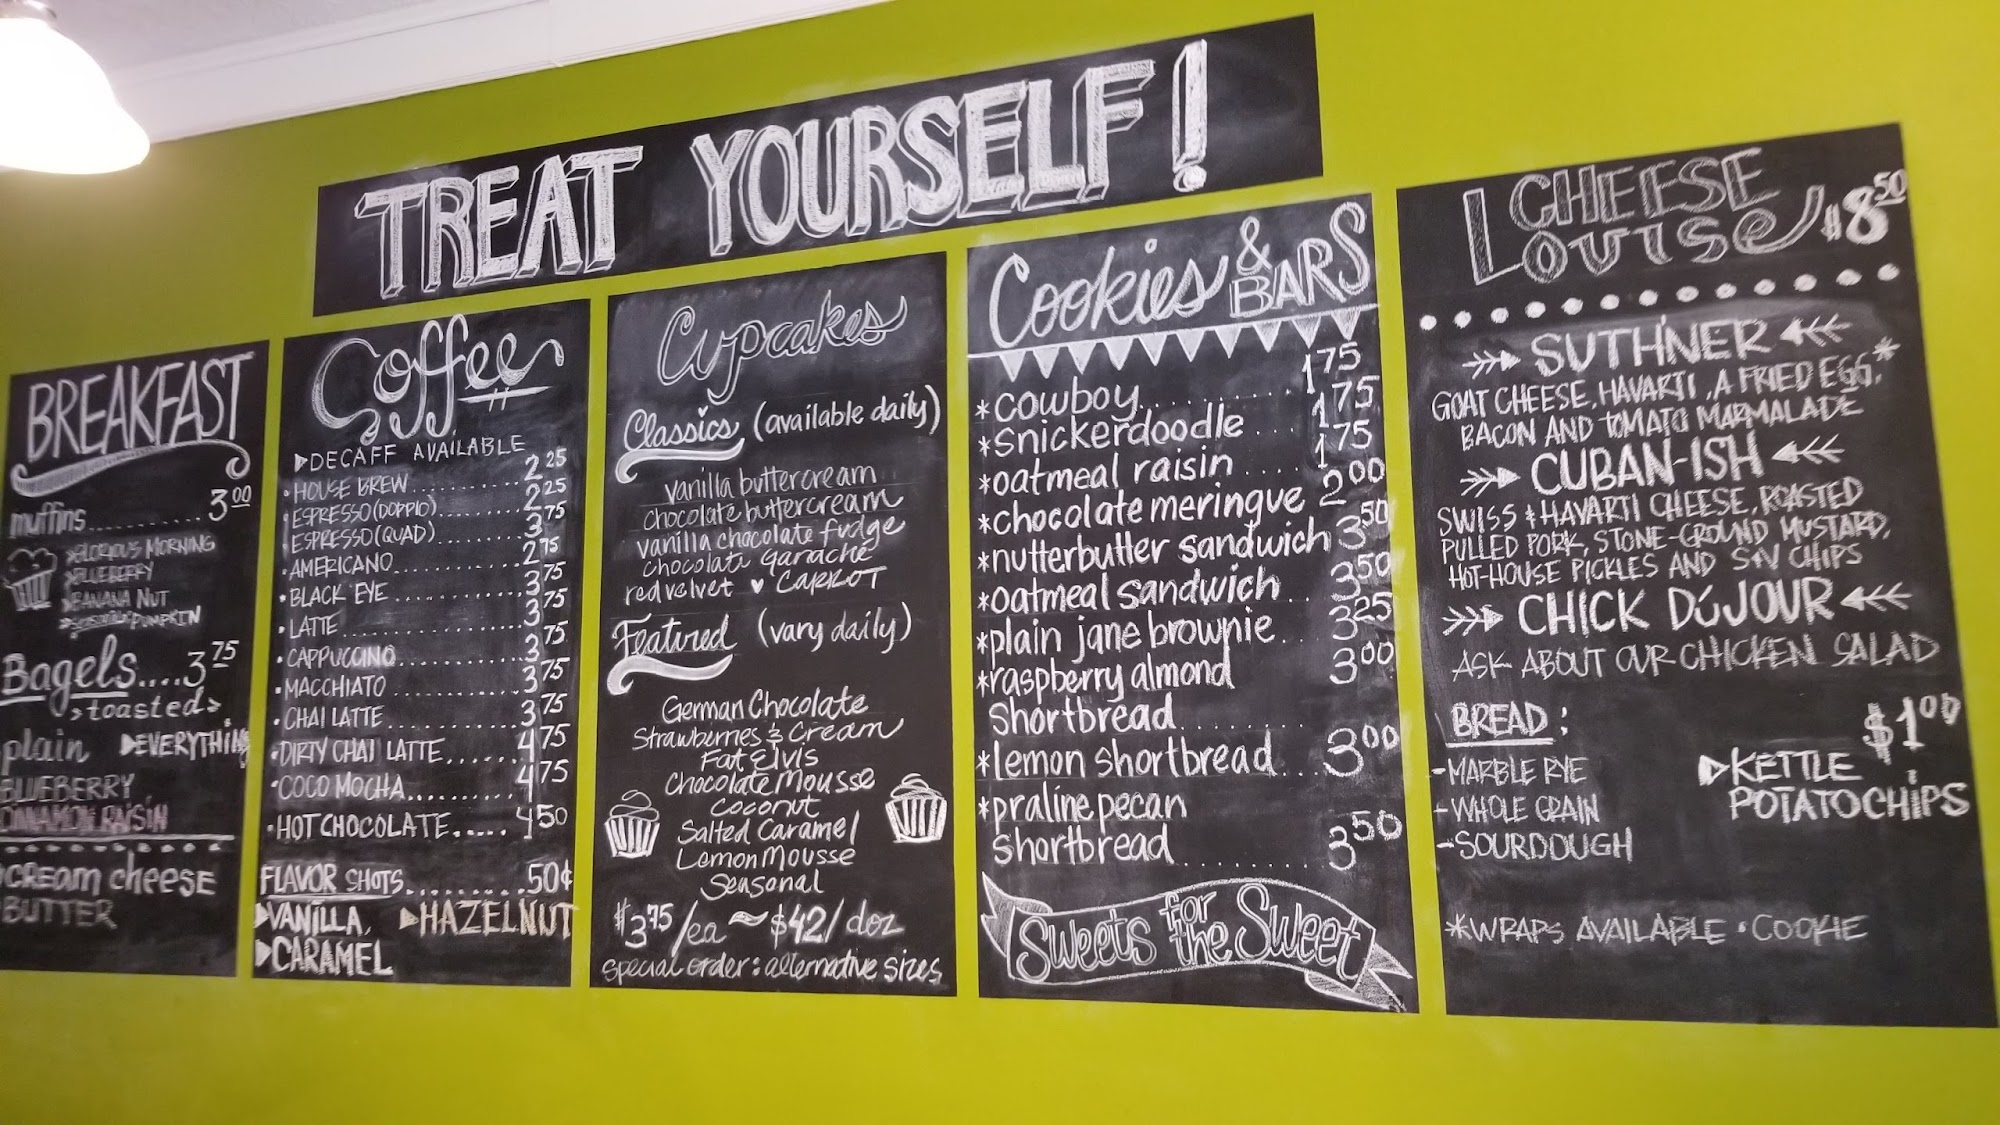 TREAT YOURSELF!
BREAKFAST
muffins.......... 3.00
GLORIOUS MORNING
BLUEBERRY
BANANA NUT
PUMPKIN
Bagels....3.75
>toasted>
plain EVERYTHING
BLUEBERRY
CINNAMON RAISIN
CREAM cheese
BUTTER
Coffee
DECAFF AVAILABLE
HOUSE BREW.......... 2.25
ESPRESSO (DOPPIO).......... 2.25
ESPRESSO (QUAD).......... 3.75
AMERICANO.......... 2.75
BLACK EYE.......... 3.75
LATTE.......... 3.75
CAPPUCCINO.......... 3.75
MACCHIATO.......... 3.75
CHAI LATTE.......... 3.75
DIRTY CHAI LATTE.......... 4.75
COCO MOCHA.......... 4.75
HOT CHOCOLATE..... 1.50
FLAVOR SHOTS.......... .50¢
VANILLA, HAZELNUT
CARAMEL
Cupcakes
Classics (available daily)
vanilla buttercream
chocolate buttercream
vanilla chocolate fudge
chocolate ganache
red velvet ♥ CARROT
Featured (vary daily)
German Chocolate
Strawberries & Cream
Fat Elvis
Chocolate Mousse
Coconut
Salted Caramel
Lemon Mousse
Seasonal
$3.75/ea ~ $42/doz
special order: alternative sizes
Cookies & BARS
*cowboy.......... 1.75
*snickerdoodle.... 1.75
*oatmeal raisin..... 1.75
*chocolate meringue 2.00
*nutterbutter sandwich 3.50
*oatmeal sandwich.. 3.50
*plain jane brownie.. 3.25
*raspberry almond 3.00
shortbread..........
*lemon shortbread... 3.00
*praline pecan
shortbread.......... 3.50
Sweets for the Sweet
CHEESE
LOUISE $8.50
SUTH'NER
GOAT CHEESE, HAVARTI, A FRIED EGG,*
BACON AND TOMATO MARMALADE
CUBAN-ISH
SWISS & HAVARTI CHEESE, ROASTED
PULLED PORK, STONE-GROUND MUSTARD,
HOT-HOUSE PICKLES AND S+V CHIPS
CHICK DúJOUR
ASK ABOUT OUR CHICKEN SALAD
BREAD:
-MARBLE RYE
-WHOLE GRAIN
-SOURDOUGH
$1.00
KETTLE
POTATO CHIPS
*WRAPS AVAILABLE • COOKIE